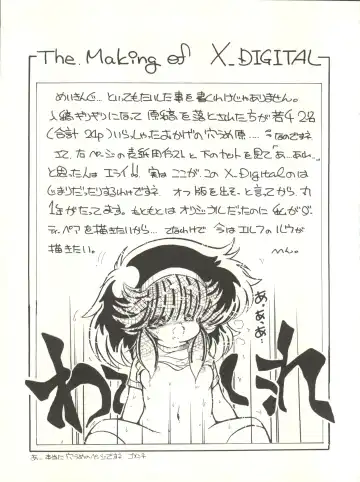 The Making of X_DIGITAL
めいきんぐ… といってもたいした事を書くわけじゃありません。
人稿ぎりぎりになって 原稿を落とされた方が若干2名
(合計 24p)いらしゃったおかげの穴うめ原…… なのですネ
さて、右ページの表紙用イラストと 下のカットを見て「あ…あれ…」
と思った人は エライ!、実は ここが、この X_Digitalのは
じまりだったりするわけですネ オフ版を出そ、と言ってから、丸
1年がたってます。もともとは オリジナルだったのに 私が
ペアを描きたいから… てなわけで 今は エルフの ルウが
描きたい。
へん。
あ、あ、あ、
あ… 本当に 穴うめのページですネ